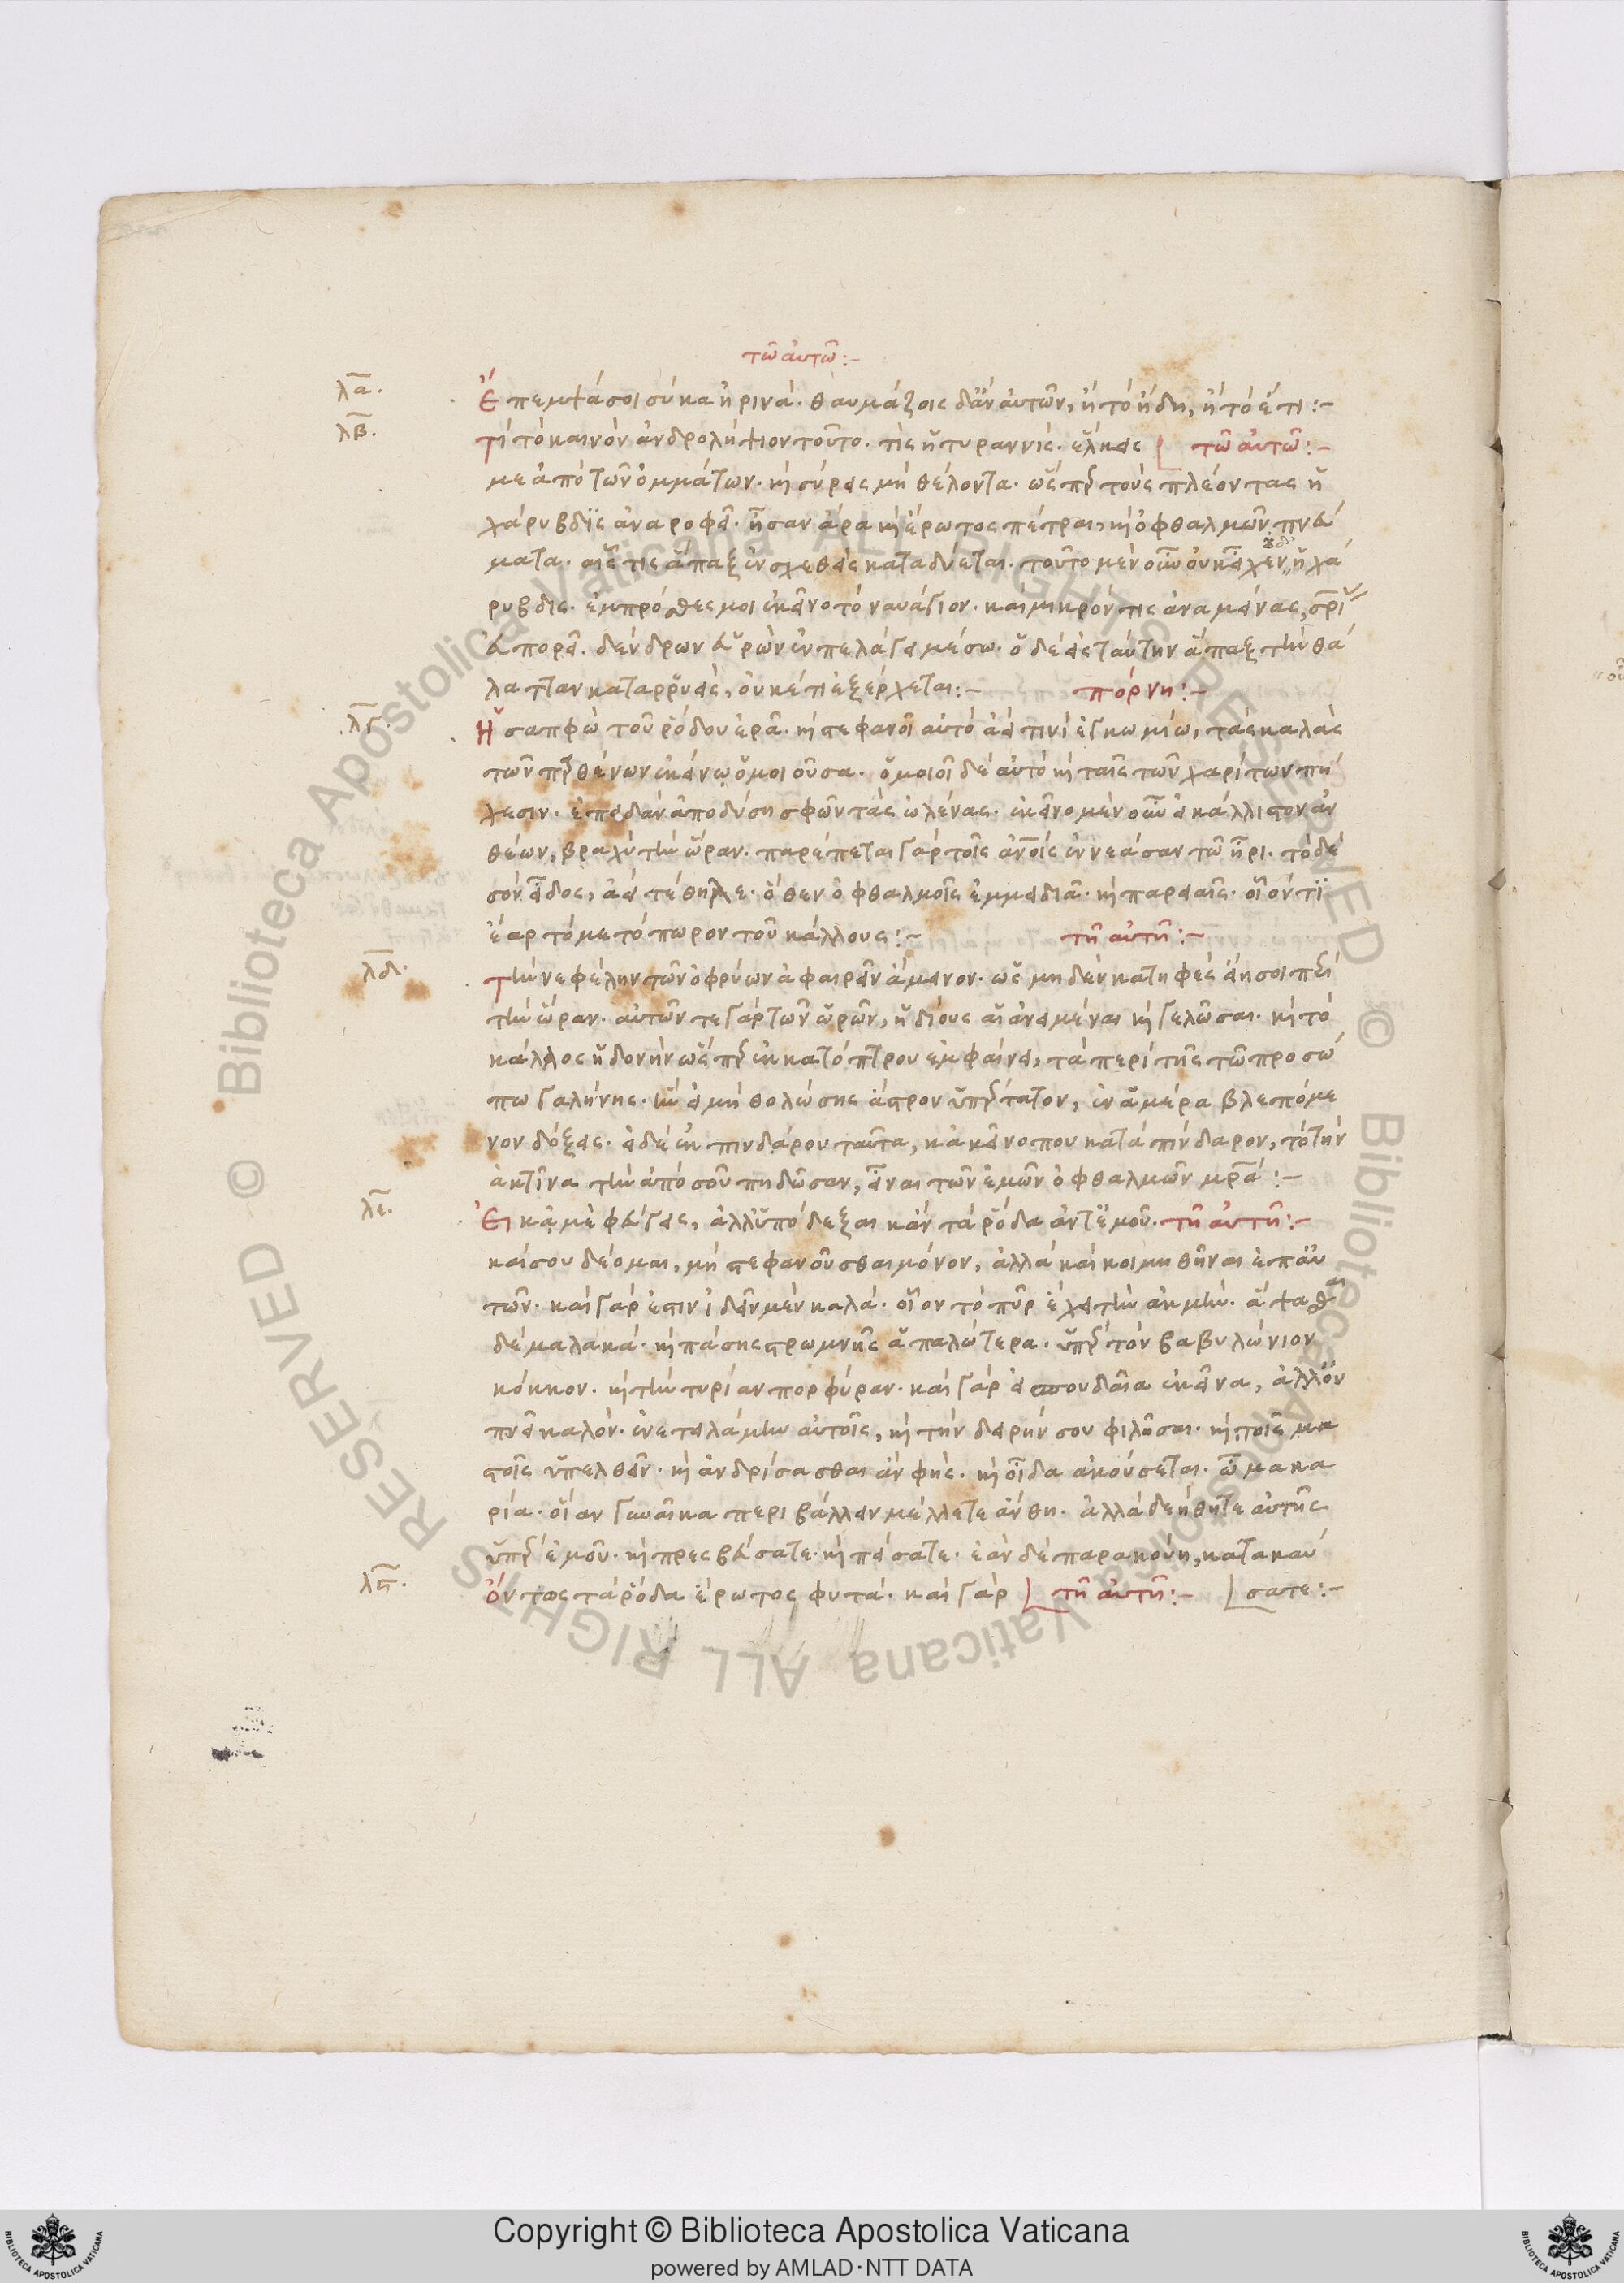 τῶ αὐτῶ :-
λα. Ἔπεμψά σοι σύκα ἠρινά. θαυμάζοις δ' ἂν αὐτῶν, ἢ τὸ ἤδη, ἢ τὸ ἔτι :-
λβ. Τί τὸ καινὸν ἀνδρολήψιον τοῦτο. τίς ἡ τυραννίς. εἷλκες τῶ αὐτῶ :-
με ἀπὸ τῶν ὀμμάτων. καὶ σύρεις μὴ θέλοντα. ὥσπερ τοὺς πλέοντας ἡ
χάρυβδις ἀναροφεῖ. ἦσαν ἄρα καὶ ἔρωτος πέτραι, καὶ ὀφθαλμῶν πνεύ
ματα. οἷς τις ἅπαξ ἐνσχεθεὶς καταδύεται. τοῦτο μὲν οὖν οὐκ εἶχεν ἡ χά
ρυβδις. ἐμπρόθεσμοι ἐκεῖνο τὸ ναυάγιον. καὶ μικρόν τις ἀναμείνας,
εὐπορεῖ. δένδρων εὑρὼν ἐν πελάγει μέσω. ὁ δὲ εἰς ταύτην ἅπαξ τὴν θά
λατταν καταρρυείς, οὐκέτι ἐξέρχεται :- πόρνη :-
λγ. Ἡ σαπφὼ τοῦ ῥόδου ἐρᾶ. καὶ στεφανοῖ αὐτὸ ἀεί τινι ἐγκωμίω, τὰς καλὰς
τῶν παρθένων ἐκείνω ὁμοιοῦσα. ὁμοιοῖ δὲ αὐτὸ καὶ ταῖς τῶν χαρίτων πή
χεσιν. ἐπειδὰν ἀποδύση σφῶν τὰς ὠλένας. ἐκεῖνο μὲν οὖν εἰ κάλλιστον ἀν
θέων, βραχὺ τὴν ὥραν. παρέπεται γὰρ τοῖς ἄλλοις ἐννεάσαν τῶ ἦρι. τὸ δὲ
σὸν εἶδος, ἀεὶ τέθηλε. ὅθεν ὀφθαλμοῖς ἐμμειδιᾶ. καὶ παρειαῖς. οἷόν τι
ἔαρ τὸ μετόπωρον τοῦ κάλλους :- τῆ αὐτῆ :-
λδ. Τὴν νεφέλην τῶν ὀφρύων ἀφαιρεῖν ἄμεινον. ὡς μηδὲν κατηφὲς εἴη σοι περὶ
τὴν ὥραν. αὐτῶν τε γὰρ τῶν ὡρῶν, ἡδίους αἱ ἀνειμέναι καὶ γελῶσαι. καὶ τὸ
κάλλος ἡδονὴν ὥσπερ ἐκ κατόπτρου ἐμφαίνει, τὰ περὶ τῆς τῶν προσώ
πω γαλήνης. ἣν εἰ μὴ θολώσης ἄστρον ὑπέρτατον, ἐν ἁμέρα βλεπόμε
νον δόξεις. εἰ δὲ ἐκ πινδάρου ταῦτα, κἀκεῖνό που κατὰ πίνδαρον, τὸ τὴν
ἀκτῖνα τὴν ἀπὸ σοῦ πηδῶσαν, εἶναι τῶν ἐμῶν ὀφθαλμῶν μητέρα :-
λε. Εἰ κἀμὲ φεύγεις, ἀλλ' ὑπόδεξαι κἂν τὰ ῥόδα ἀντ' ἐμοῦ. τῆ αὐτῆ :-
καί σου δέομαι, μὴ στεφανοῦσθαι μόνον, ἀλλὰ καὶ κοιμηθῆναι ἐπ' αὐ
τῶν. καὶ γάρ ἐστιν ἰδεῖν μὲν καλά. οἷον τὸ πῦρ ἔχει τὴν ἀκμήν. ἅψασθαι
δὲ μαλακά. καὶ πάσης στρωμνῆς ἁπαλώτερα. ὑπὲρ τὸν βαβυλώνιον
κόκκον. καὶ τὴν τυρίαν πορφύραν. καὶ γὰρ εἰ σπουδαῖα ἐκεῖνα, ἀλλ' οὐ
πνεῖ καλόν. ἐνετειλάμην αὐτοῖς, καὶ τὴν δειρήν σου φιλῆσαι. καὶ τοῖς μα
στοῖς ὑπελθεῖν. καὶ ἀνδρίσασθαι ἂν φῆς. καὶ οἶδα ἀκούσεται. ὦ μακα
ρία. οἵαν γυναῖκα περιβάλλειν μέλλετε ἄνθη. ἀλλὰ δεήθητε αὐτῆς
ὑπὲρ ἐμοῦ. καὶ πρεσβεύσατε. καὶ πείσατε. ἐὰν δὲ παρακούη, κατακαύ
λϛ. Ὄντως τὰ ῥόδα ἔρωτος φυτά. καὶ γὰρ τῆ αὐτῆ :- σατε :-
Copyright © Biblioteca Apostolica Vaticana
powered by AMLAD · NTT DATA
© Biblioteca Apostolica Vaticana ALL RIGHTS RESERVED
© Biblioteca Apostolica Vaticana ALL RIGHTS RESERVED
BIBLIOTECA APOSTOLICA VATICANA
BIBLIOTECA APOSTOLICA VATICANA